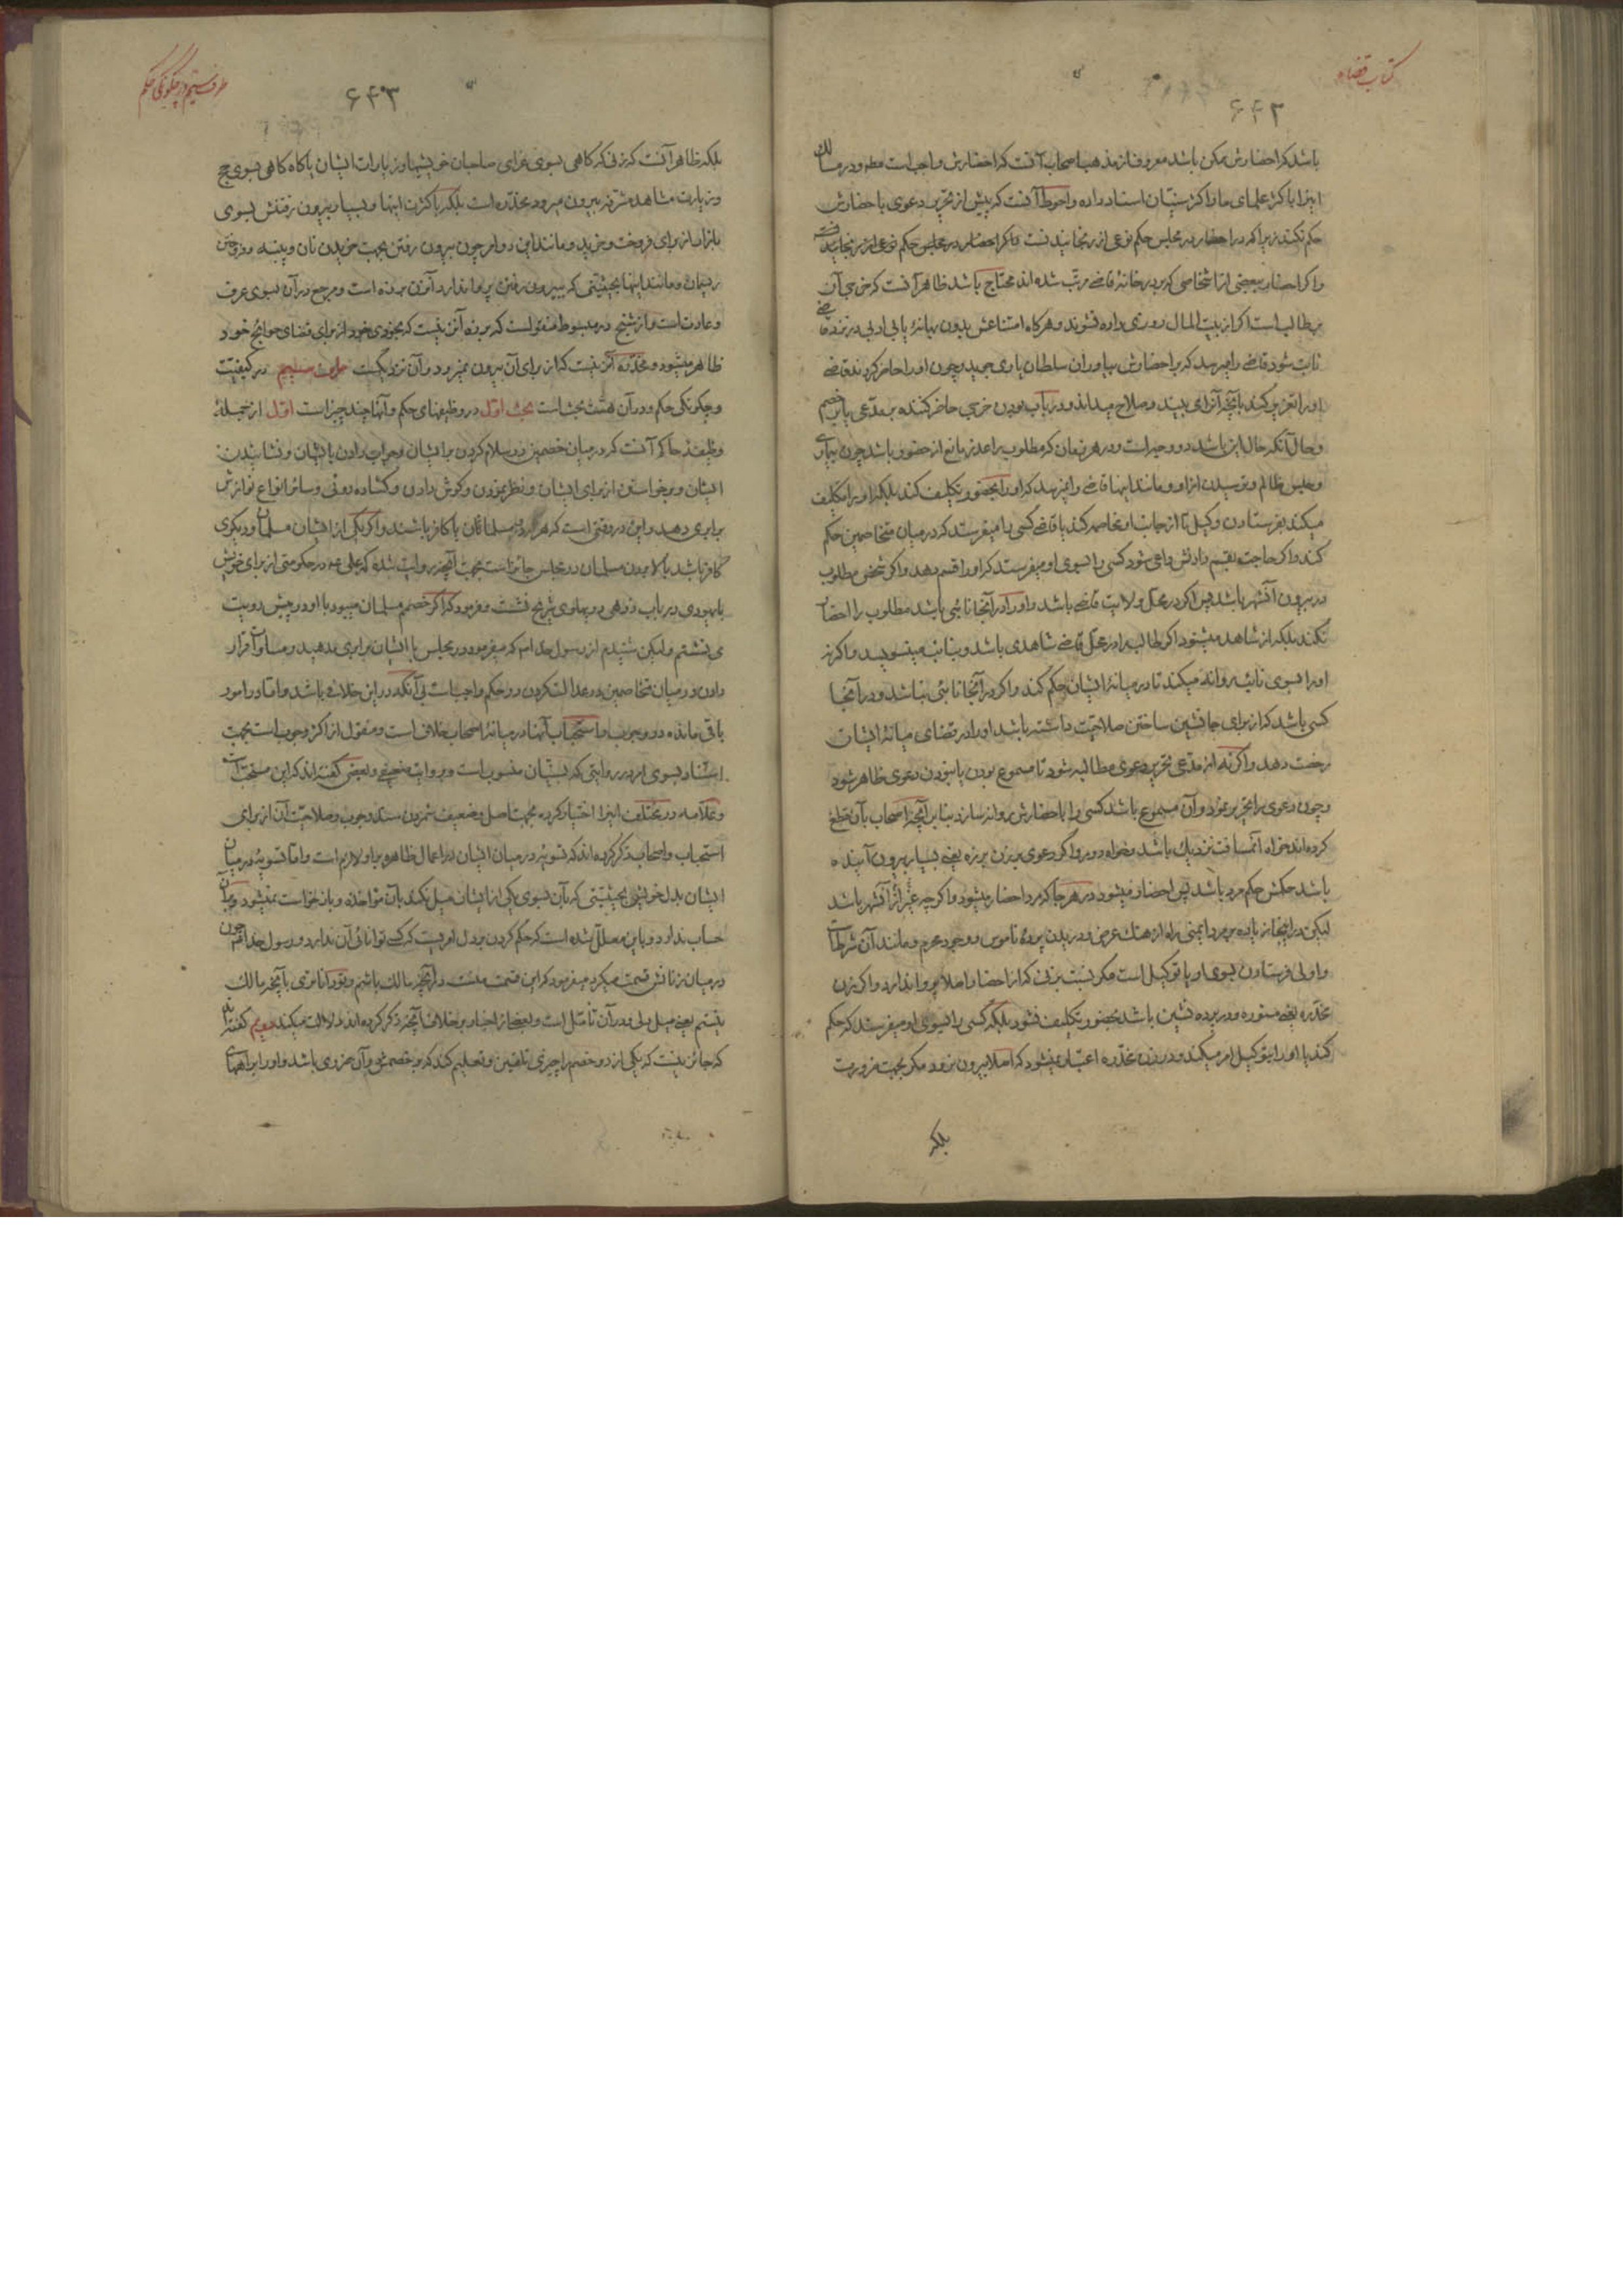 کتاب قضاء
۶۴۲
باشد که احضارش ممکن باشد معروف از مذهب اصحاب آنست که احضارش واجب است مطه و در مسالک
اینرا با کثر علمای ما و اکثر سنیان اسناد داده و احوط آنست که پیش از تحریر دعوی با حضارش
حکم نکند زیرا که در احضار در مجلس حکم نوعی از رنجانیدنست
و اگر احضار ببعضی از اشخاصی که بر در خانهٔ قاضی مرتب شده اند محتاج باشد ظاهر آنست که خرجی آن
بر طالب است اگر از بیت المال روزی داده نشوند و هرگاه امتناعش بدون بهانهٔ یا بی ادبی در نزد قاضی
ثابت شود قاضی را میرسد که بر احضارش بیاوران سلطان یاری جوید و چون او را حاضر کردند قاضی
او را تعزیر کند بآنچه آنرا می بیند و صلاح میداند و در باب بودن خرجی حاضر کننده بر مدعی یا بر خصم
و حال آنکه حال این باشد دو وجه است و در هر زمان که مطلوب را عذر مانع از حضور باشد چون بیماری
و حبس ظالم و ترسیدن از او و مانند اینها قاضی را نمیرسد که او را بحضور تکلیف کند بلکه او را تکلیف
میکند بفرستادن وکیل تا از جانب او مخاصمه کند یا قاضی کسی را میفرستد که در میان متخاصمین حکم
کند و اگر حاجت بقسم دادنش داعی شود کسی را بسوی او میفرستد که او را قسم دهد و اگر شخص مطلوب
در بیرون آنشهر باشد پس اگر در محل ولایت قاضی باشد و او را در آنجا نائبی باشد مطلوب را احضار
نکند بلکه از شاهد میشنود اگر طالب را در محل قاضی شاهدی باشد و بنائبه مینویسد و اگر نه
او را بسوی نائب روانه میکند تا در میانهٔ ایشان حکم کند و اگر در آنجا نائبی نباشد و در آنجا
کسی باشد که از برای جانشین ساختن صلاحیت داشته باشد او را در قضای میانهٔ ایشان
رخصت دهد و اگر نه از مدعی تحریر دعوی مطالبه شود تا مسموع بودن یا نبودن دعوی ظاهر شود
و چون دعوی را تحریر نمود و آن مسموع باشد کسی را با حضارش روانه سازد بنابر آنچه اصحاب بآن قطع
کرده اند خواه آنمسافت نزدیک باشد و خواه دور و اگر دعوی بر زن برزه یعنی بسیار بیرون آینده
باشد حکمش حکم مرد باشد پس احضار میشود در هر جا که مرد احضار میشود و اگر چه غیر از آنشهر باشد
لیکن در اینجا زیاده بر مرد ایمنی راه از هتک عرض و دریدن پردهٔ ناموس و وجود محرم و مانند آن شرطست
و اولی فرستادن بسوی او یا توکیل است مگر نسبت بزنی که از احضار اصلا پروا ندارد و اگر زن
مخدره یعنی مستوره و در پرده نشین باشد بحضور تکلیف نشود بلکه کسی را بسوی او میفرستد که حکم
کند یا او را بتوکیل امر میکند و در زن مخدره اعتبار نمیشود که اصلا بیرون نرود مگر بجهت ضرورت
بلکه
طرف سیم در چگونگی حکم
۶۴۳
بلکه ظاهر آنست که زنی که گاهی بسوی عزای صاحبان خویشیها و زیارات ایشان یا گاه گاهی بسوی حج
و زیارت مشاهد مشرفه بیرون میرود مخدره است بلکه با کثرت اینها و بسیار بیرون رفتنش بسوی
بازار از برای فروخت و خرید و مانند این دو امر چون بیرون رفتن بجهت خریدن نان و پنبه و فروختن
ریسمان و مانند اینها بحیثیتی که ببیرون رفتن پروا ندارد آنزن برزه است و مرجع در آن بسوی عرف
و عادتست و از شیخ در مبسوط منقولست که برزه آنزنیست که بخودی خود از برای قضای حوایج خود
ظاهر میشود و مخدره آنزنیست که از برای آن بیرون نمیرود و آن نزدیکست طرف سیم در کیفیت
و چگونگی حکم و در آن هشت بحث است بحث اول در وظیفهای حکم و آنها چند چیز است اول از جملهٔ
وظیفهٔ حاکم آنست که در میان خصمین در سلام کردن بر ایشان و جواب دادن با ایشان و نشانیدن
ایشان و برخواستن از برای ایشان و نظر نمودن و گوش دادن و گشاده روئی و سائر انواع نوازش
برابری دهد و این در وقتی است که هر دو مسلمانان یا کافر باشند و اگر یکی از ایشان مسلمان و دیگری
کافر باشد بالا بودن مسلمان در مجلس جائز است بجهت آنچه روایت شده که علی عم در حکومتی از برای خویش
با یهودی در باب زرهی در پهلوی شریح نشست و فرمود که اگر خصم مسلمان میبود با او در پیش رویت
می نشستم و لیکن شنیدم از رسول خدا ص که میفرمود در مجلس با ایشان برابری مدهید و مساوات قرار
دادن در میان متخاصمین در عدالت کردن در حکم واجبست بی آنکه در این خلاف باشد و اما در امور
باقی مانده در وجوب یا استحباب آنها در میانهٔ اصحاب خلاف است و منقول از اکثر وجوب است بجهت
استناد بسوی امر در روایتی که بسنیان منسوب است و بروایت ضعیف و بعضی گفته اند که این مستحب است
و علامه در مختلف اینرا اختیار کرده بجهت اصل و ضعیف شمردن سند وجوب و صلاحیت آن از برای
استحباب و اصحاب ذکر کرده اند که تسویه در میان ایشان در اعمال ظاهره بر او لازم است و اما تسویه در میان
ایشان بدل خویش بحیثیتی که بآن بسوی یکی از ایشان میل نکند بآن مؤاخذه و بازخواست نمیشود
حساب ندارد و باین معلل شده است که حکم کردن بر دل امریست که کسی توانائی آن ندارد و رسول خدا ص چون
در میان زنانش قسمت میکرد میفرمود که این قسمت منست در آنچه مالک باشم و تو دانا تری بآنچه مالک
نیستم یعنی میل دلی و در آن تأمل است و بعضی از اخبار بر خلاف آنچه ذکر کرده اند دلالت میکند دویم گفته اند
که جائز نیست که یکی از دو خصم را چیزی تلقین و تعلیم کند که بر خصمش در آن ضرری باشد و او را براههای